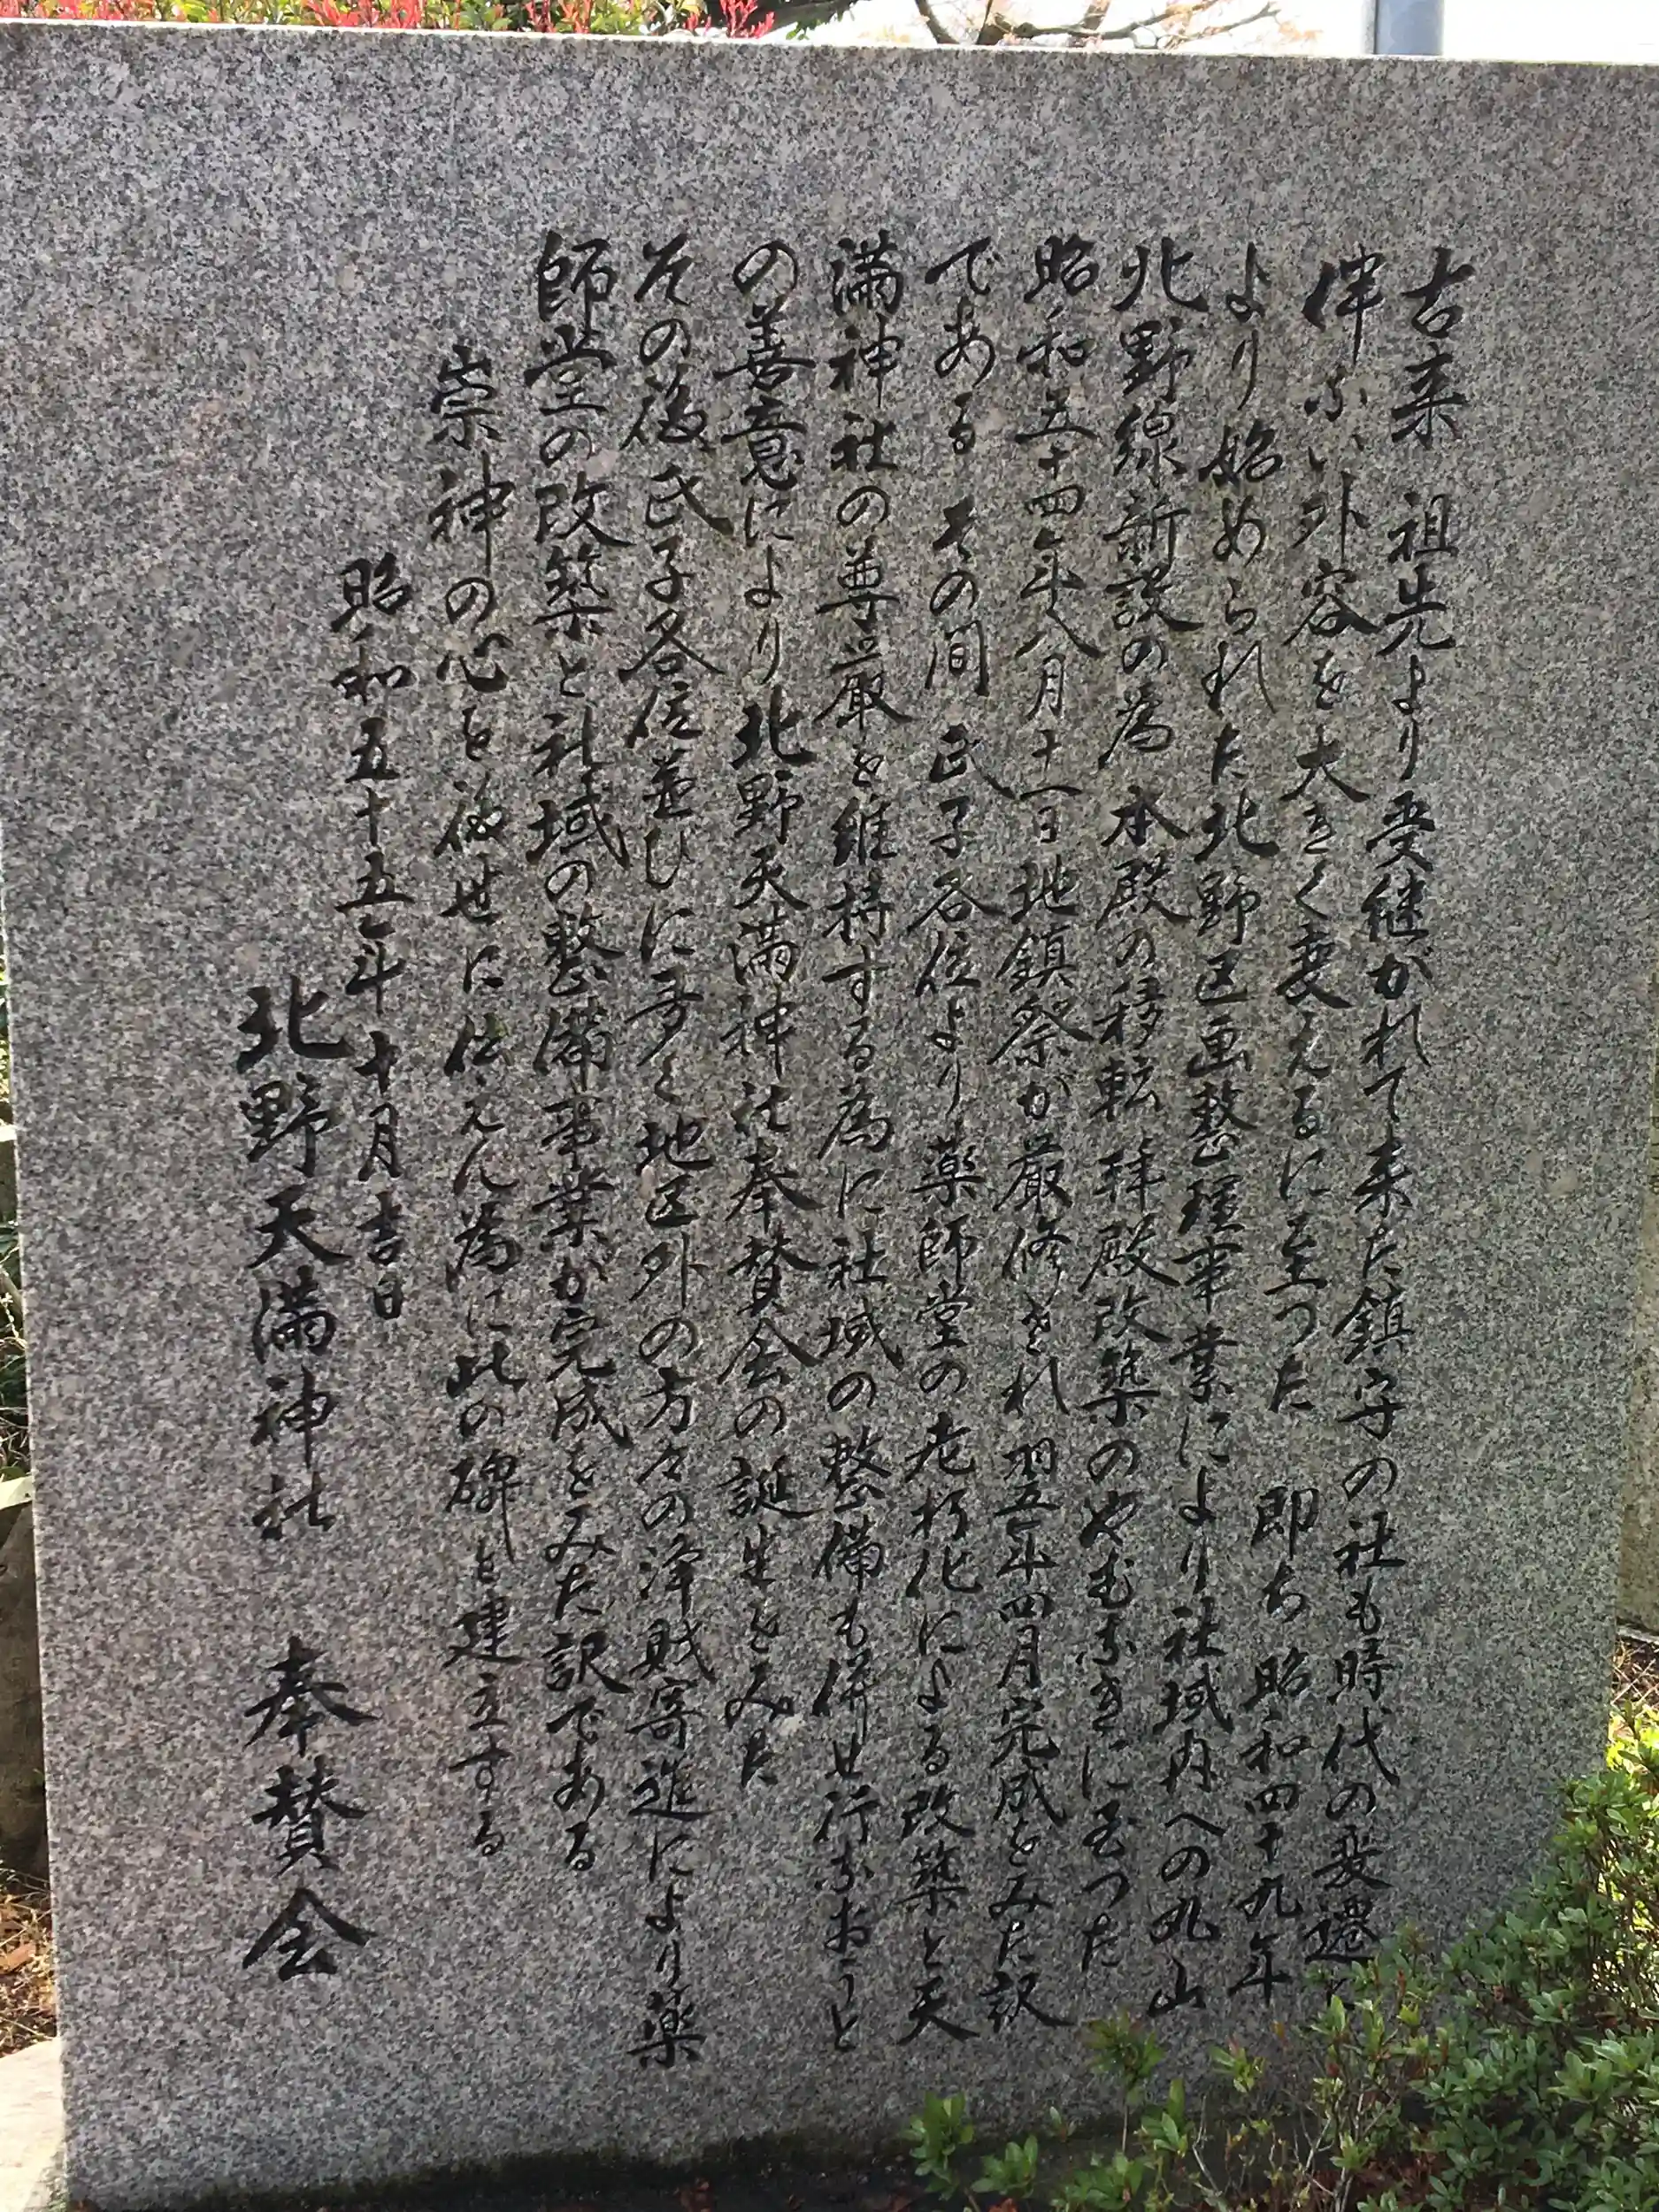 古来 祖先より受継がれて来た鎮守の社も時代の変遷に
伴ない外容を大きく変えるに至つた 即ち昭和四十九年
より始められた北野区画整理事業により社域内への丸山
北野線新設の為 本殿の移転拝殿改築のやむなきに至つた
昭和五十四年八月十一日地鎮祭が厳修され翌五年四月完成をみた訳
である その間 氏子各位より薬師堂の老朽化による改築と天
満神社の尊厳を維持する為に社域の整備も併せ行なおうと
の善意により北野天満神社奉賛会の誕生をみた
その後氏子各位並びに多く地区外の方々の浄財寄進により薬
師堂の改築と社域の整備事業が完成をみた訳である
崇神の心を後世に伝えん為に此の碑を建立する
昭和五十五年十月吉日
北野天満神社 奉賛会